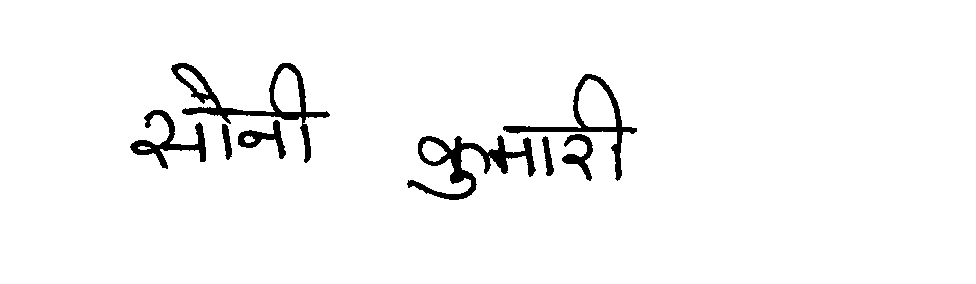 सौनी कुमारी